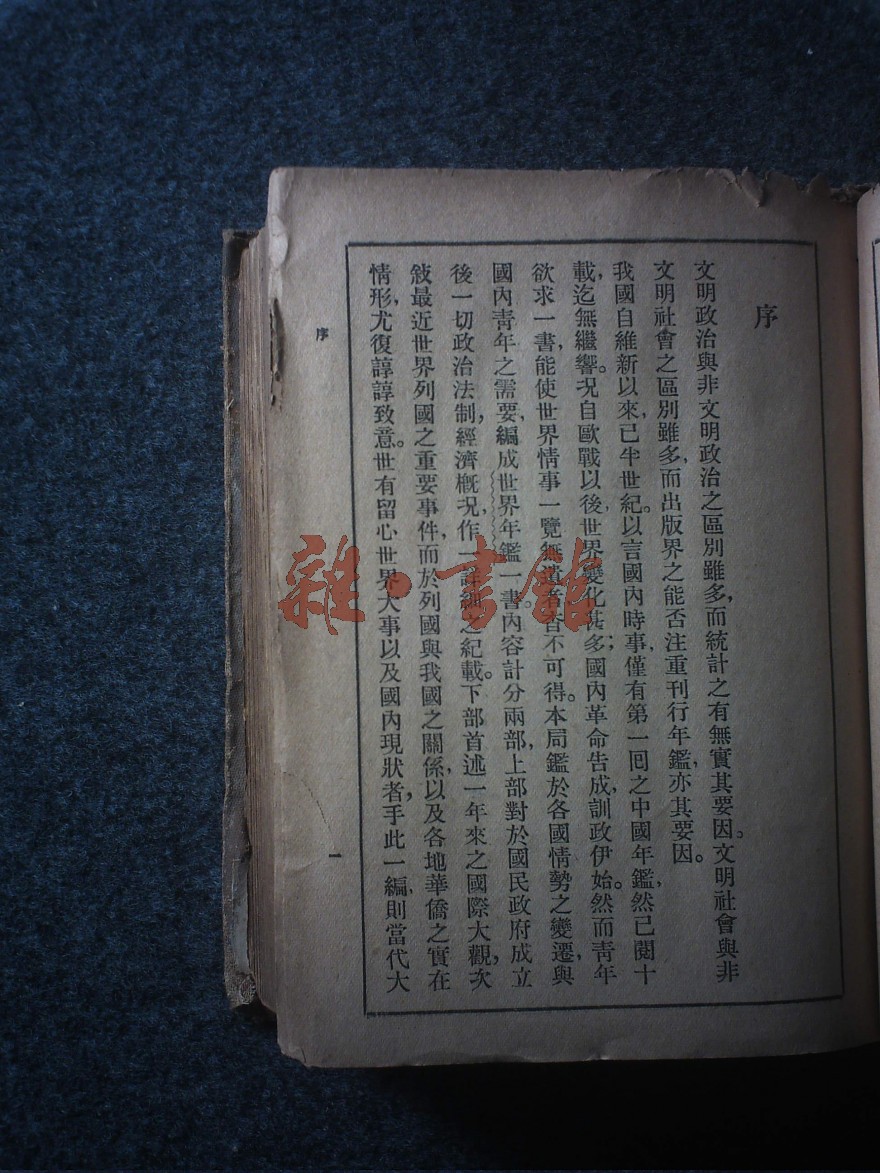 序
文明政治與非文明政治之區別雖多，而統計之有無實其要因。文明社會與非
文明社會之區別雖多，而出版界之能否注重刊行年鑑，亦其要因。
我國自維新以來，已半世紀。以言國內時事，僅有第一回之中國年鑑，然已閱十
載，迄無繼響。況自歐戰以後，世界變化甚多；國內革命告成，訓政伊始。然而青年
欲求一書，能使世界情事一覽無遺者，杳不可得。本局鑑於各國情勢之變遷，與
國內青年之需要，編成世界年鑑一書。內容計分兩部，上部對於國民政府成立
後一切政治法制，經濟概況，作一詳細之紀載。下部首述一年來之國際大觀，次
敍最近世界列國之重要事件，而於列國與我國之關係，以及各地華僑之實在
情形，尤復諄諄致意。世有留心世界大事以及國內現狀者，手此一編，則當代大
序
一
雜·書館